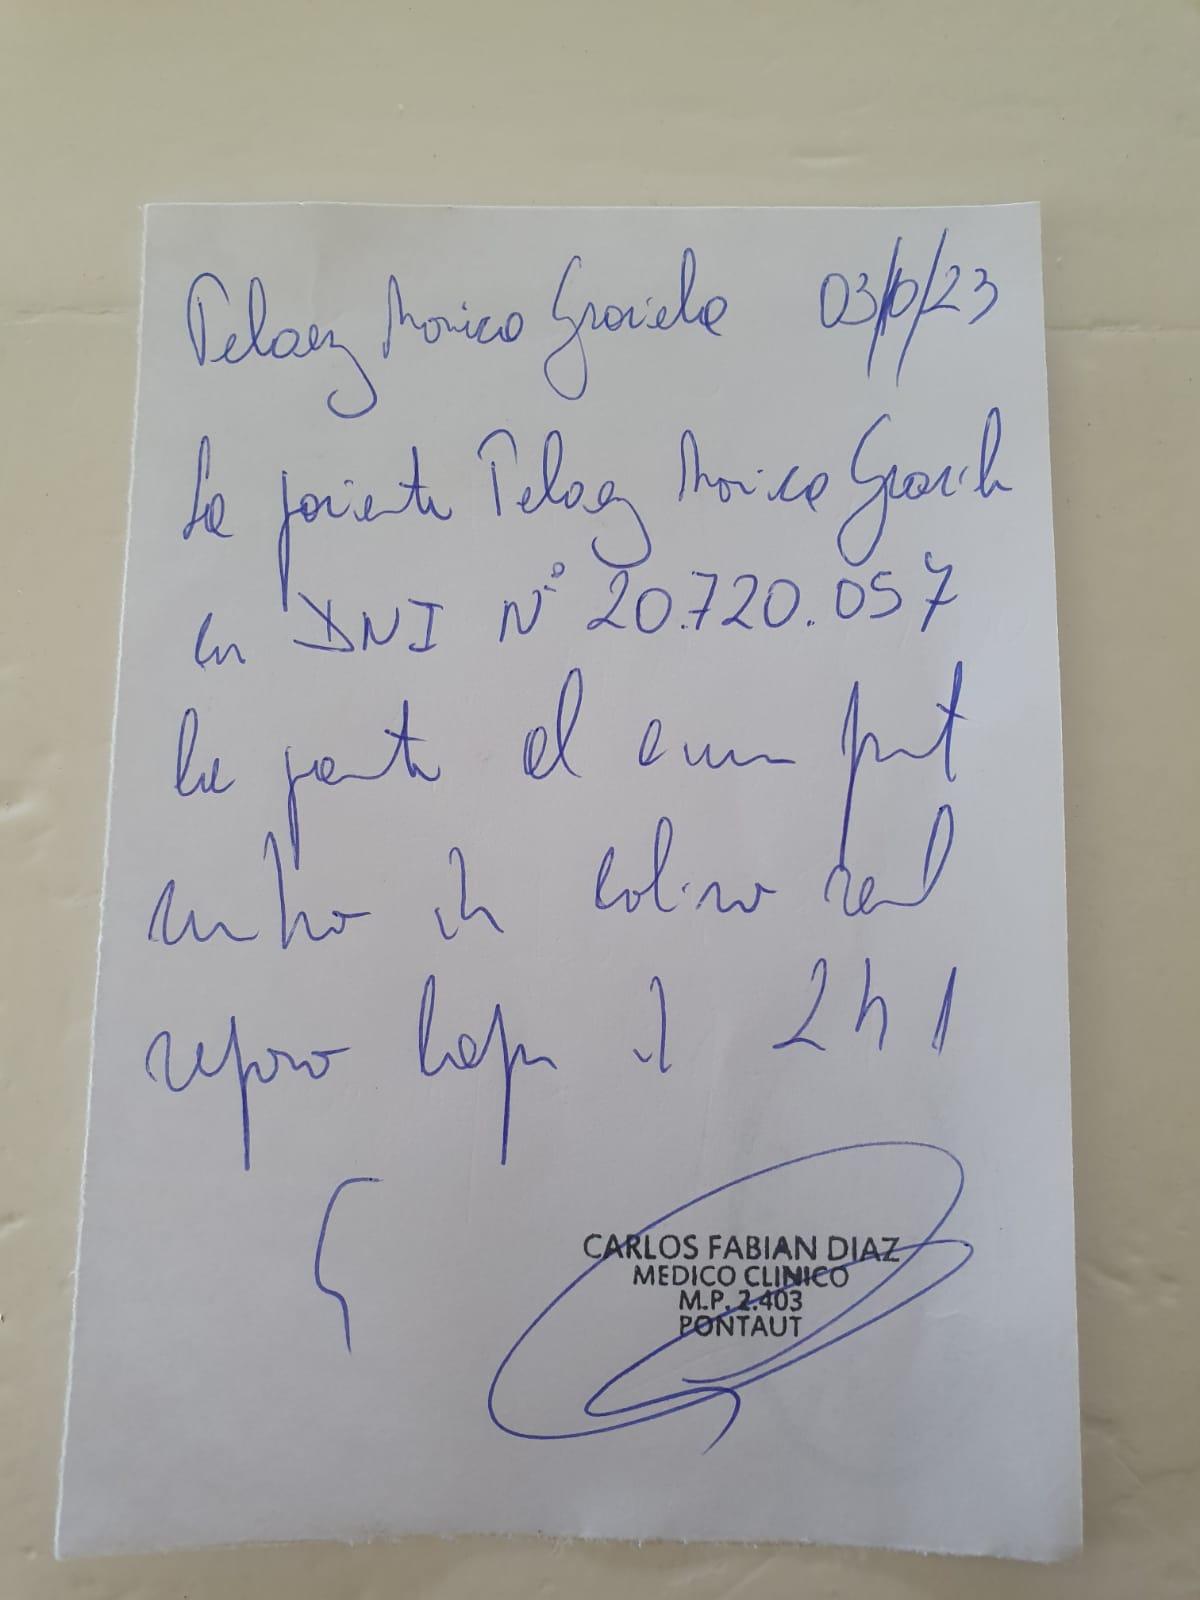 Pelaez Monica Graciela 03/10/23
La paciente Pelaez Monica Graciela
con DNI N° 20.720.057
se presenta al
de colico renal
reposo 24 h
CARLOS FABIAN DIAZ
MEDICO CLINICO
M.P. 2.403
PONTAUT